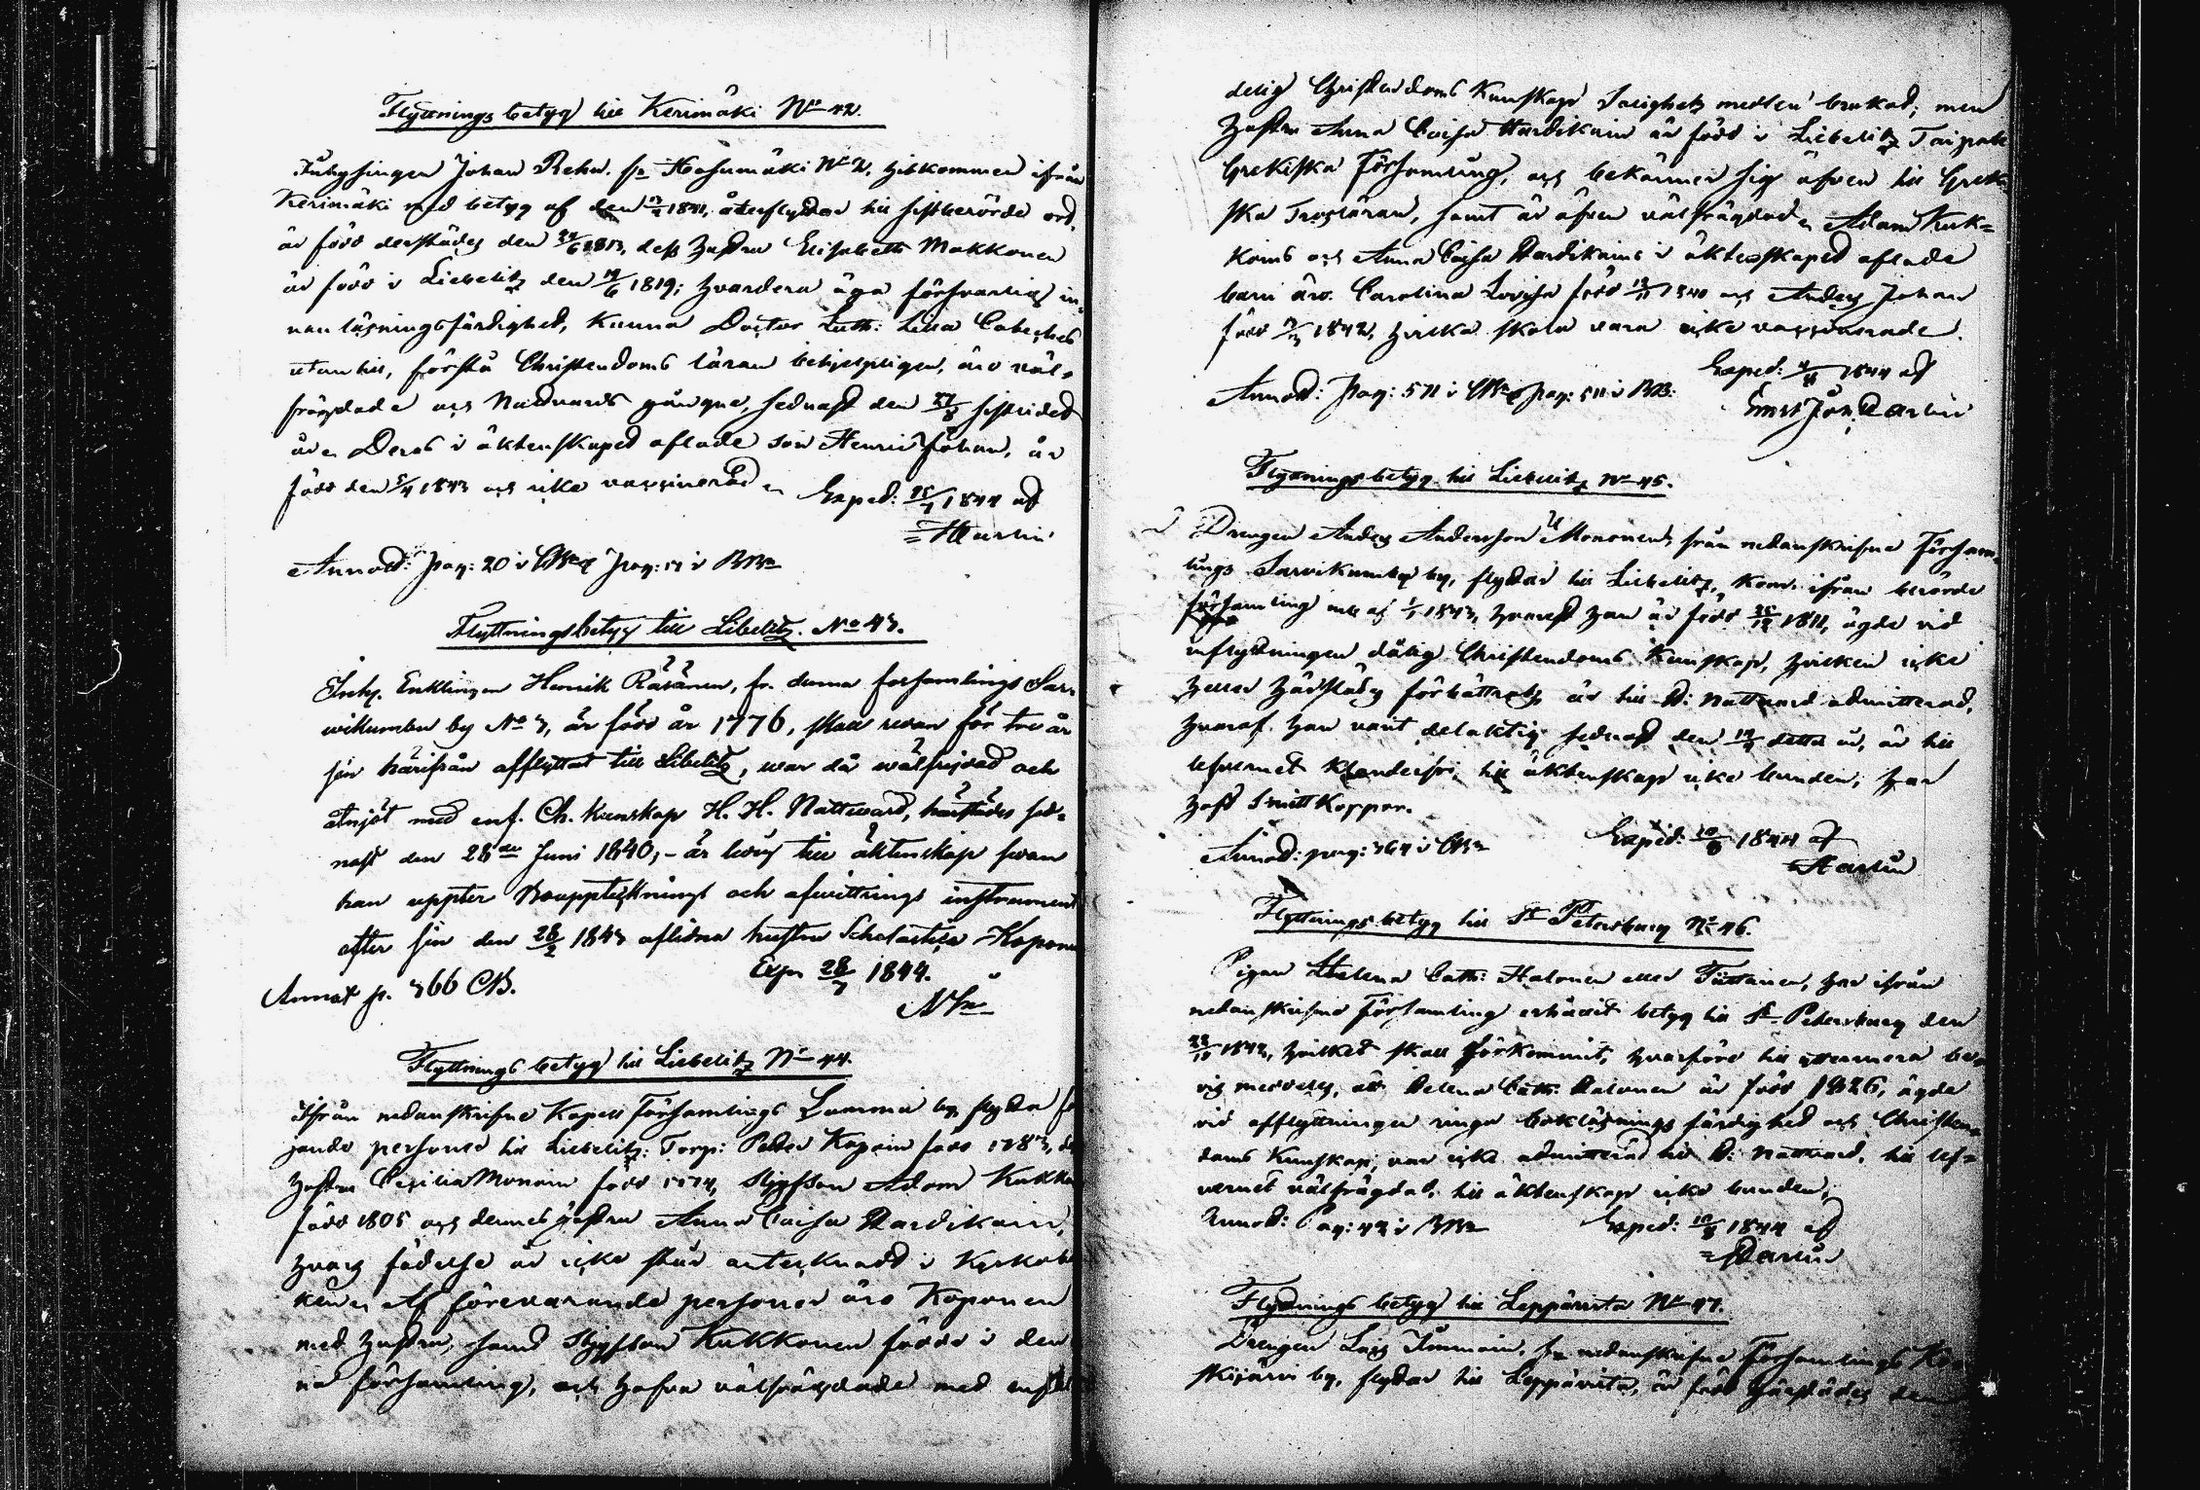 Flyttnings betyg till Kerimäki No 42.
Inhysingen Johan Rehn. fr. Hasumäki No 2, hitkommen ifrån
Kerimäki med betyg af den 1841, återflyttar till sistberörde ort,
är född derstädes den 1813, dess hustru Elisabeth Makkonen
är född i Liebelitz den 19/6 1819; hvardera äga försvarlig in-
nan läsningsfärdighet, kunna Doctor Luth: Lilla Cateches
utantill, förstå Christendoms läran behjelpligen, äro väl-
frägdade och Nattvards gångne, sednast den sistlidet
år. Deras i äktenskapet aflade son Henric Johan, är
född den 5/4 1843 och icke vaccinerad.
Exped: 25/7 1844 af
Hartin
Annot: pag: 20 i CBn & pag: i BBn
Flyttningsbetyg till Libelitz. No 43.
Inhy. Enklingen Henrik Räsänen, fr. denna församlings Sar-
wikumbu by No 3, är född år 1776, skall redan för tre år
sen härifrån afflyttat till Libelitz, war då wälfrejdad och
åtnjöt med enf. Ch. kunskap H. H. Nattward, härstädes sed-
nast den 28de Juni 1840, - är ledig till äktenskap sedan
han uppter Boupptecknings och afwittrings instrument
efter sin den 28/2 1843 aflidna hustru Scholastica Kopone
Annot p. 366 CB.
Exp. 28/7 1844.
Flyttnings betyg till Liebelitz No 44.
Ifrån nedanskrifne Kapell Församlings Luumä by, flytta föl
jande personer till Liebelitz: Torp: Petter Kopoin född 1783, de
hustru Cecilia Monoin född 1774, Styfson Adam Kukko
född 1805 och dennes hustru Anna Caisa Hardikain,
hvars födelse är icke står antecknadt i Kyrkobö
ken. Af förevarande personer äro Koponen
med hustru, samt styfson Kukkonen födde i den
na församling, och hafva välfrägdade med enskil
delig Christendoms Kunskap Salighets medlen brukat; men
hustru Anna Caisa Hardikain är född i Liebelitz Taipale
Grekiska Församling, och bekänner sig äfven till Greki
ska Trosläran, samt är äfven välfrägdad. Adam Kuk-
koins och Anna Caisa Hardikains i äktenskapet aflade
barn äro. Carolina Lovisa född 1840 och Anders Johan
född 1842, hvilka skola vara icke vaccinerade.
Exped: 1844 af
Annot: Pag: 571 i CBn & pag: 511 i BB.
Flyttningsbetyg till Liebelitz No 45.
Drengen Anders Andersson Mononen, från nedanskrifne Församl-
lings Sarvikumbu by, flyttar till Liebelitz, kom. ifrån berörde
församling 1/1 1843, hvarest han är född 25/12 1811, ägde vid
utflyttningen dålig Christendoms Kunskap, hvilken icke
heller härstädes förbättrats, är till H: Nattvard admitterad,
hvaraf han varit delaktig sednast den detta år, är till
lefvernet till äktenskap icke bunden; han
haft Smittkoppor.
Annot: pag: 364 i CBn
Exped: 10/8 1844 af
Hartin
Flyttnings betyg till St Petersburg No 46.
Pigan Helena Cath: Halonen eller Tüttinen, har ifrån
nedanskrifne Församling erhållit betyg till St. Petersburg den
22/10 1842, hvilket skall förkommit, hvarföre till yttermera be-
vis meddelas, att Helena Cath: Halonen är född 1826, ägde
vid afflyttningen ringa bokläsnings färdighet och Christen-
doms Kunskap, var icke admitterad till H: Nattvard, till lef-
vernet välfrägdad, till äktenskap icke bunden;
Annot: Pag: 42 i BBn
Exped: 10/8 1844 af
Hartin
Flyttnings betyg till Leppävirta No 47.
Drengen Lars Immoin, fr nedanskrifne Församlings
skijärvi by, flyttar till Leppävirta, är född härstädes den